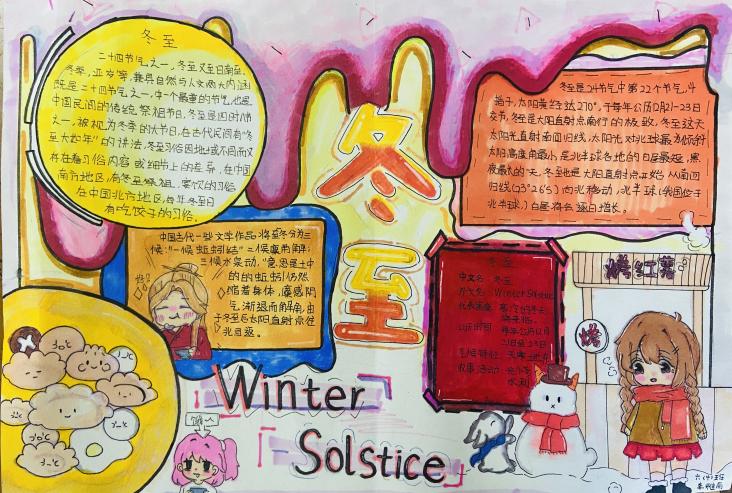 冬至
二十四节气之一，冬至又至日南至、
冬季，亚岁等，兼具自然与人文两大内涵
既是二十四节气之一，中一个最重的节气，也是
中国民间的传统祭祖节日。冬至是四时八节
之一，被视为冬季的大节日，在古代民间有"冬
至大如年"的讲法，冬至习俗因地域不同而又
存在着习俗内容或细节上的差异，在中国
南方地区，有冬至祭祖、宴饮的习俗
在中国北方地区，每年冬至日
有吃饺子的习俗.
冬至是24节气中第22个节气，斗
指子，太阳黄经达270°，于每年公历12月21-23日
交节，冬至是太阳直射点南行的极致，冬至这天
太阳光直射南回归线，太阳光对北球最为倾斜
太阳高度角最小，是北半球各地的白昼最短，黑
夜最长的一天，冬至也是太阳直射点开始从南回
归线(23°26'S)向北移动，北半球(我国位于
北半球，)白昼将会逐日增长。
中国古代一些文学作品将至冬分为三
候："一候蚯蚓结"二候麋角解；
三候水泉动，"意思是土中
的的蚯蚓仍然
缩着身体，麋感阴
气渐退而解角，由
于冬至后太阳直射点往
北回返。
冬至
冬至
中文名：冬至
外文名：Winter Solstice
Winter
Solstice
烤红薯
烤
六(4)班